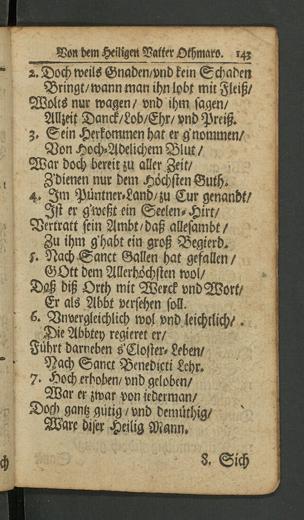 Von dem Heiligen Vatter Othmaro. 143
2. Doch weils Gnaden/vnd kein Schaden
Bringt/wann man ihn lobt mit Fleiß/
Wolts nur wagen/ vnd ihm sagen/
Allzeit Danck/Lob/Ehr/ vnd Preiß.
3. Sein Herkommen hat er g'nommen/
Von Hoch-Adelichem Blut/
War doch bereit zu aller Zeit/
Z'dienen nur dem Höchsten Guth.
4. Im Püntner-Land/ zu Cur genandt/
Ist er g'weßt ein Seelen-Hirt/
Vertratt sein Ambt/ daß allesambt/
Zu ihm g'habt ein groß Begierd.
5. Nach Sanct Gallen hat gefallen/
GOtt dem Allerhöchsten wol/
Daß diß Orth mit Werck vnd Wort/
Er als Abbt versehen soll.
6. Vnvergleichlich wol vnd leichtlich/
Die Abbtey regieret er/
Führt darneben s'Closter-Leben/
Nach Sanct Benedicti Lehr.
7. Hoch erhoben/ vnd geloben/
War er zwar von jederman/
Doch gantz gütig/ vnd demüthig/
Ware diser Heilig Mann.
8. Sich